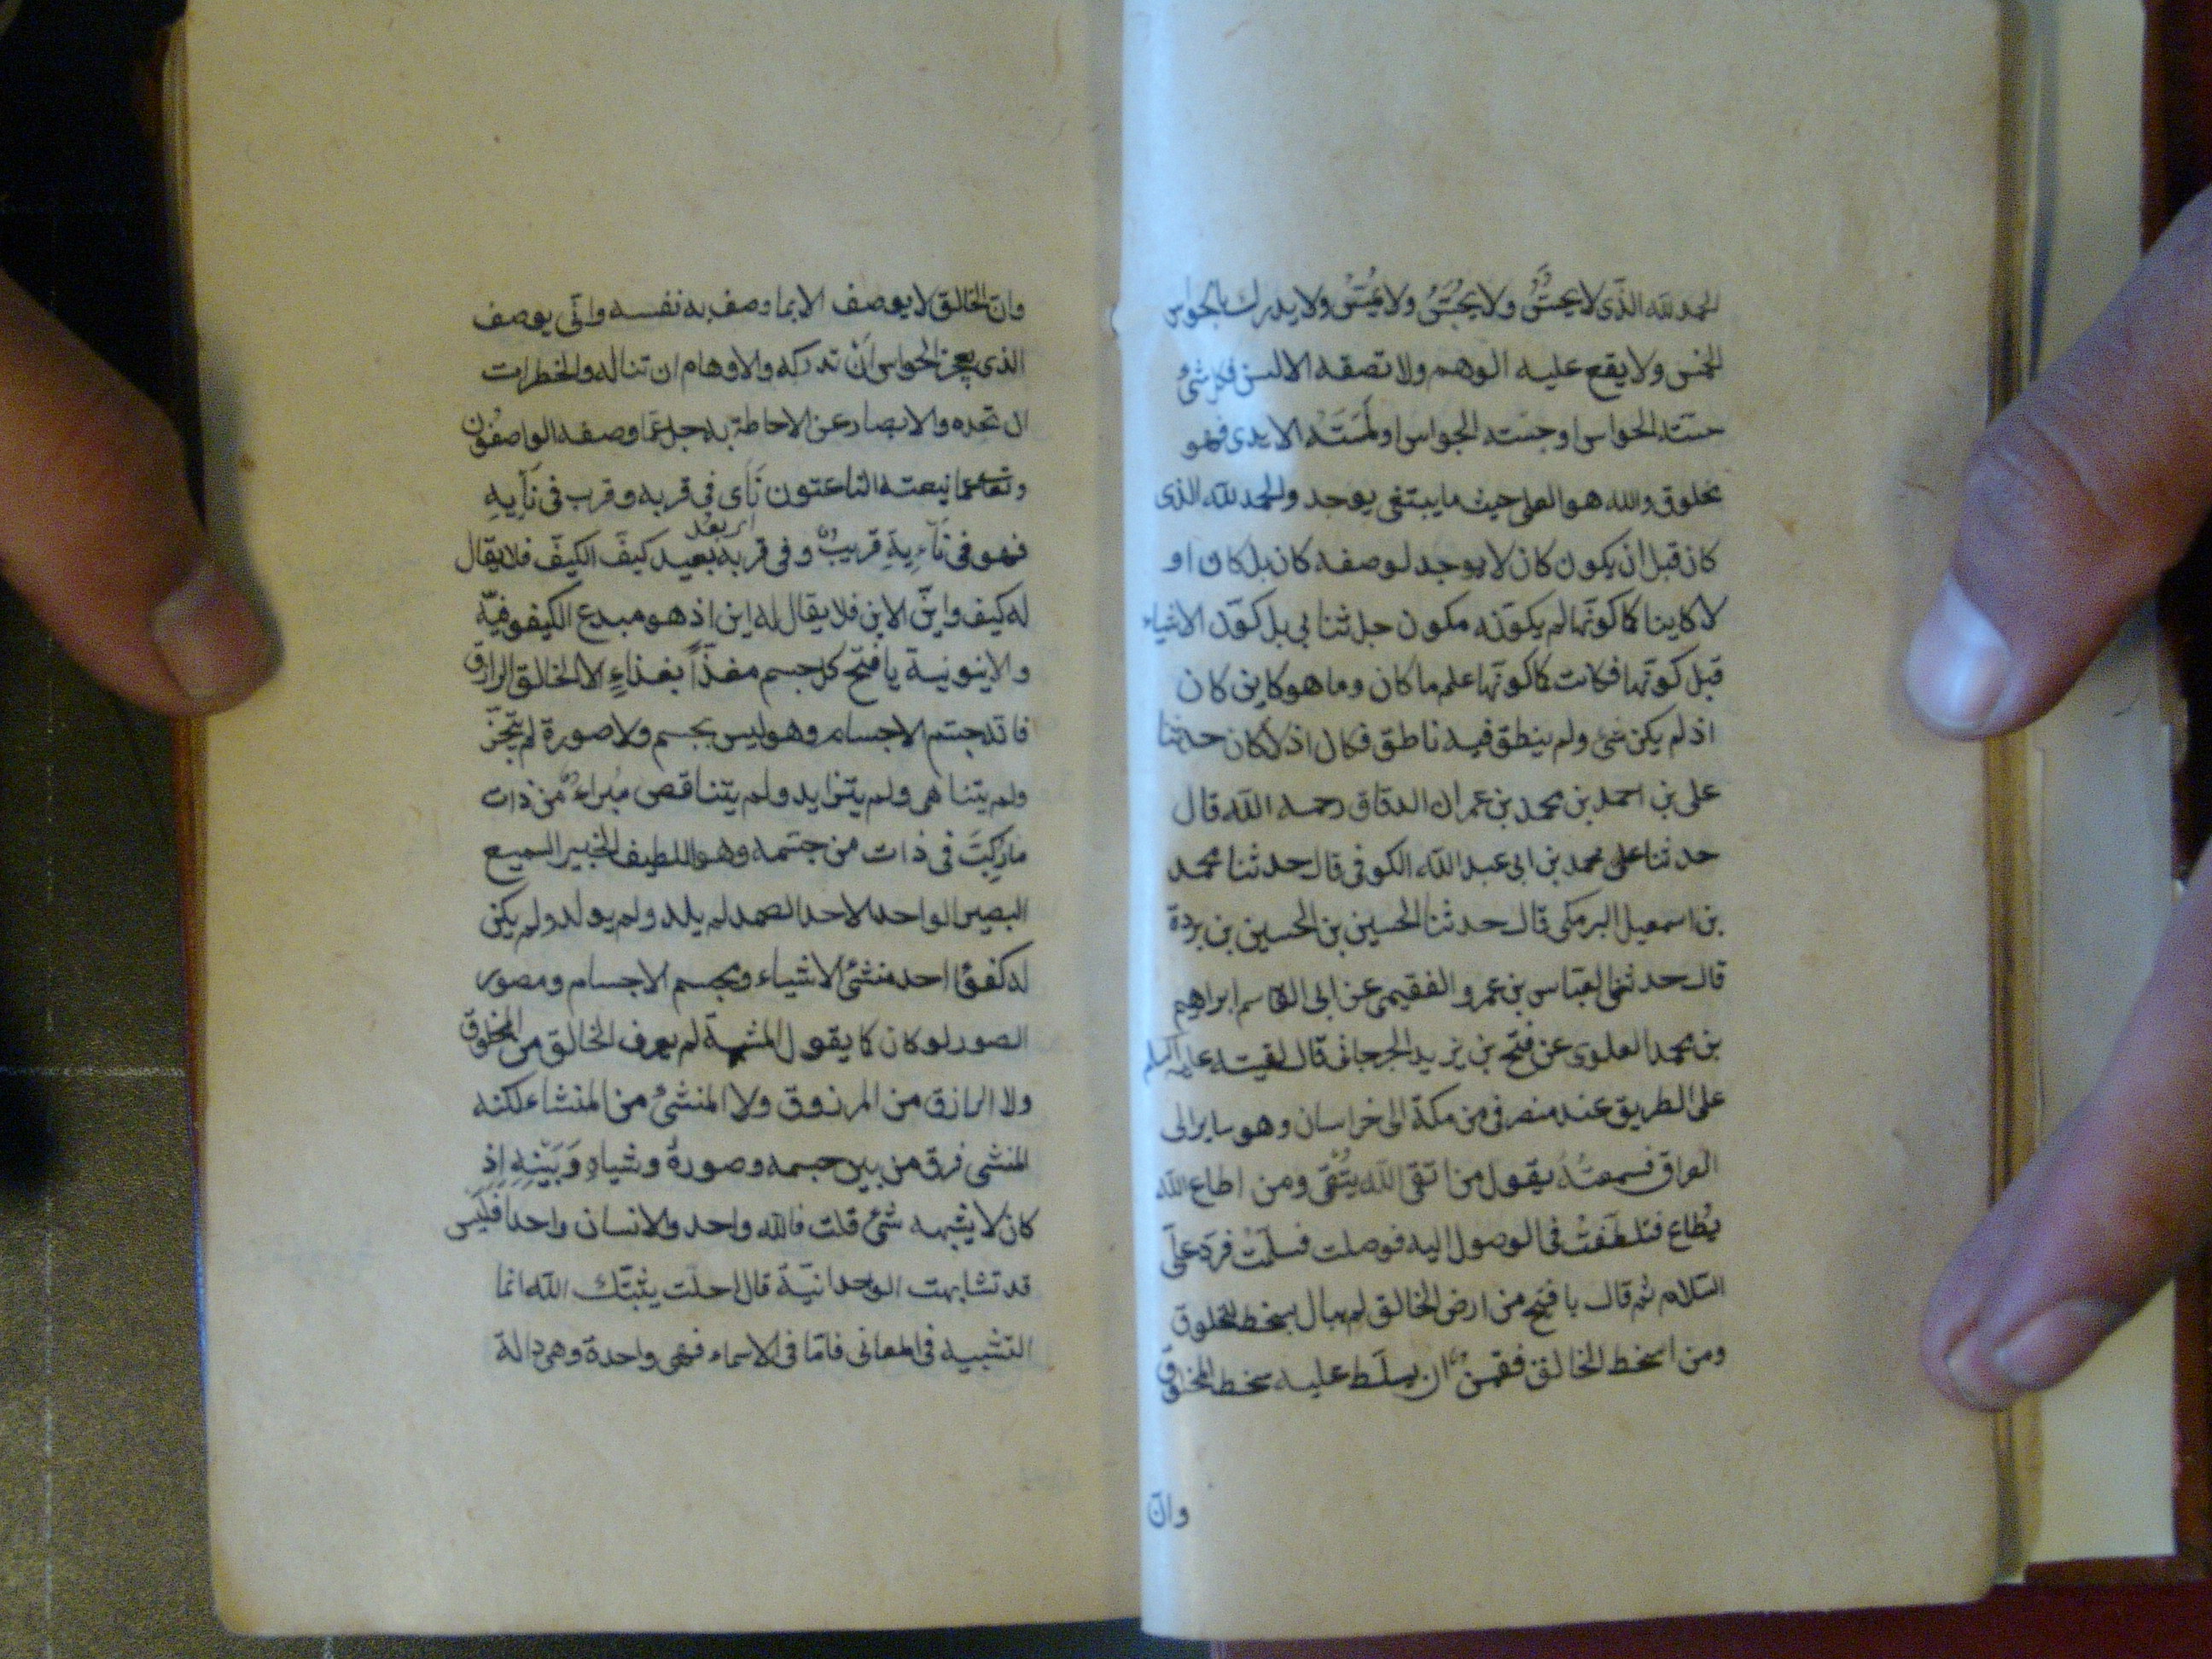 الحمد لله الذي لا يحسّ ولا يجسّ ولا يمسّ ولا يدرك بالحواس
الخمس ولا يقع عليه الوهم ولا تصفه الالسن فكل شئ
حسّته الحواس او جسّته الجواس او لمسته الايدى فهو
مخلوق والله هو العلى حيث ما يبتغى يوجد والحمد لله الذى
كان قبل ان يكون كان لا يوجد لوصفه كان بل كان او
لا كاينا كما كونها لم يكوّنه مكون جل ثنا بي بل كوّن الاشياء
قبل كونها فكانت كما كونها علم ما كان وما هو كاين كان
اذ لم يكن شئ ولم ينطق فيه ناطق فكان اذ لا كان حدثنا
على بن احمد بن محمد بن عمران الدقاق رحمه الله قال
حدثنا على محمد بن ابى عبد الله الكوفى قال حدثنا محمد
بن اسمعيل البرمكى قال حدثنا الحسين بن الحسين بن بردة
قال حدثنى العباس بن عمرو الفقيمى عن ابى القاسم ابراهيم
بن محمد العلوى عن فتح بن يزيد الجرجانى قال لقيته عليه السلم
على الطريق عند منصرفى من مكة الى خراسان وهو ساير الى
العراق فسمعته يقول من اتقى الله يتّقى ومن اطاع الله
يطاع فتلطّفت فى الوصول اليه فوصلت فسلّمت فردّ علىّ
السّلام ثم قال يا فتح من ارضى الخالق لم يبال بسخط المخلوق
ومن اسخط الخالق فقمن ان يسلّط عليه سخط المخلوق
وانّ
وان الخالق لا يوصف الا بما وصف به نفسه وانّى يوصف
الذى يعجز الحواس ان تدركه والاوهام ان تناله والخطرات
ان تحده والابصار عن الاحاطة به جل عمّا وصفه الواصفون
وتعالى عما ينعته الناعتون نأى فى قربه وقرب فى نأيه
اى بعد
فهو فى نأيه قريب وفى قربه بعيد كيّف الكيف فلا يقال
له كيف واين الاين فلا يقال له اين اذ هو مبدع الكيفوفيّة
والاينونية يا فتح كل جسم مغذّاً بغذاءٍ الا الخالق الرازق
فانه جسّم الاجسام وهو ليس بجسم ولا صورة لم يتجزّ
ولم يتناهى ولم يتزايد ولم يتناقص مبراء من ذات
ما ركّبت فى ذات من جسّمه وهو اللطيف الخبير السميع
البصير الواحد الاحد الصمد لم يلد ولم يولد ولم يكن
له كفؤا احد منشئ الاشياء ومجسم الاجسام ومصور
الصور لو كان كما يقول المشبهة لم يعرف الخالق من المخلوق
ولا الرازق من المرزوق ولا المنشئ من المنشاء لكنه
المنشى فرق من بين جسمه وصورهُ وشياه وَبَيْنِهِ اِذ
كان لا يشبهه شئ قلت فالله واحد والانسان واحد افليس
قد تشابهت الوحدانيّة قال احلت يثبّتك الله انما
التشبيه فى المعانى فامّا فى الاسماء فهى واحدة وهى دالة